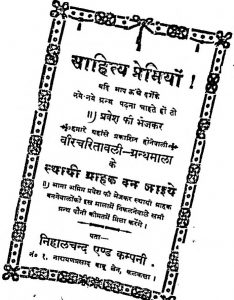 साहित्य प्रेमियों !
यदि आप ऊंचे दर्जेके
नये-नये ग्रन्थ पढ़ना चाहते हों तो
॥) प्रवेश फी भेजकर
हमारे यहांसे प्रकाशित होनेवाली
वरिचरितावली-ग्रन्थमाला
के
स्थायी ग्राहक बन जाइये
॥) आना अग्रिम प्रवेश फी भेजकर स्थायी ग्राहक
बननेवालोंको इस मालामें निकलनेवाले सभी
ग्रन्थ पौनी कीमतमें मिला करेंगे ।
पता—
निहालचन्द एण्ड कम्पनी,
नं० १, नारायणप्रसाद बाबू लेन, कलकत्ता ।